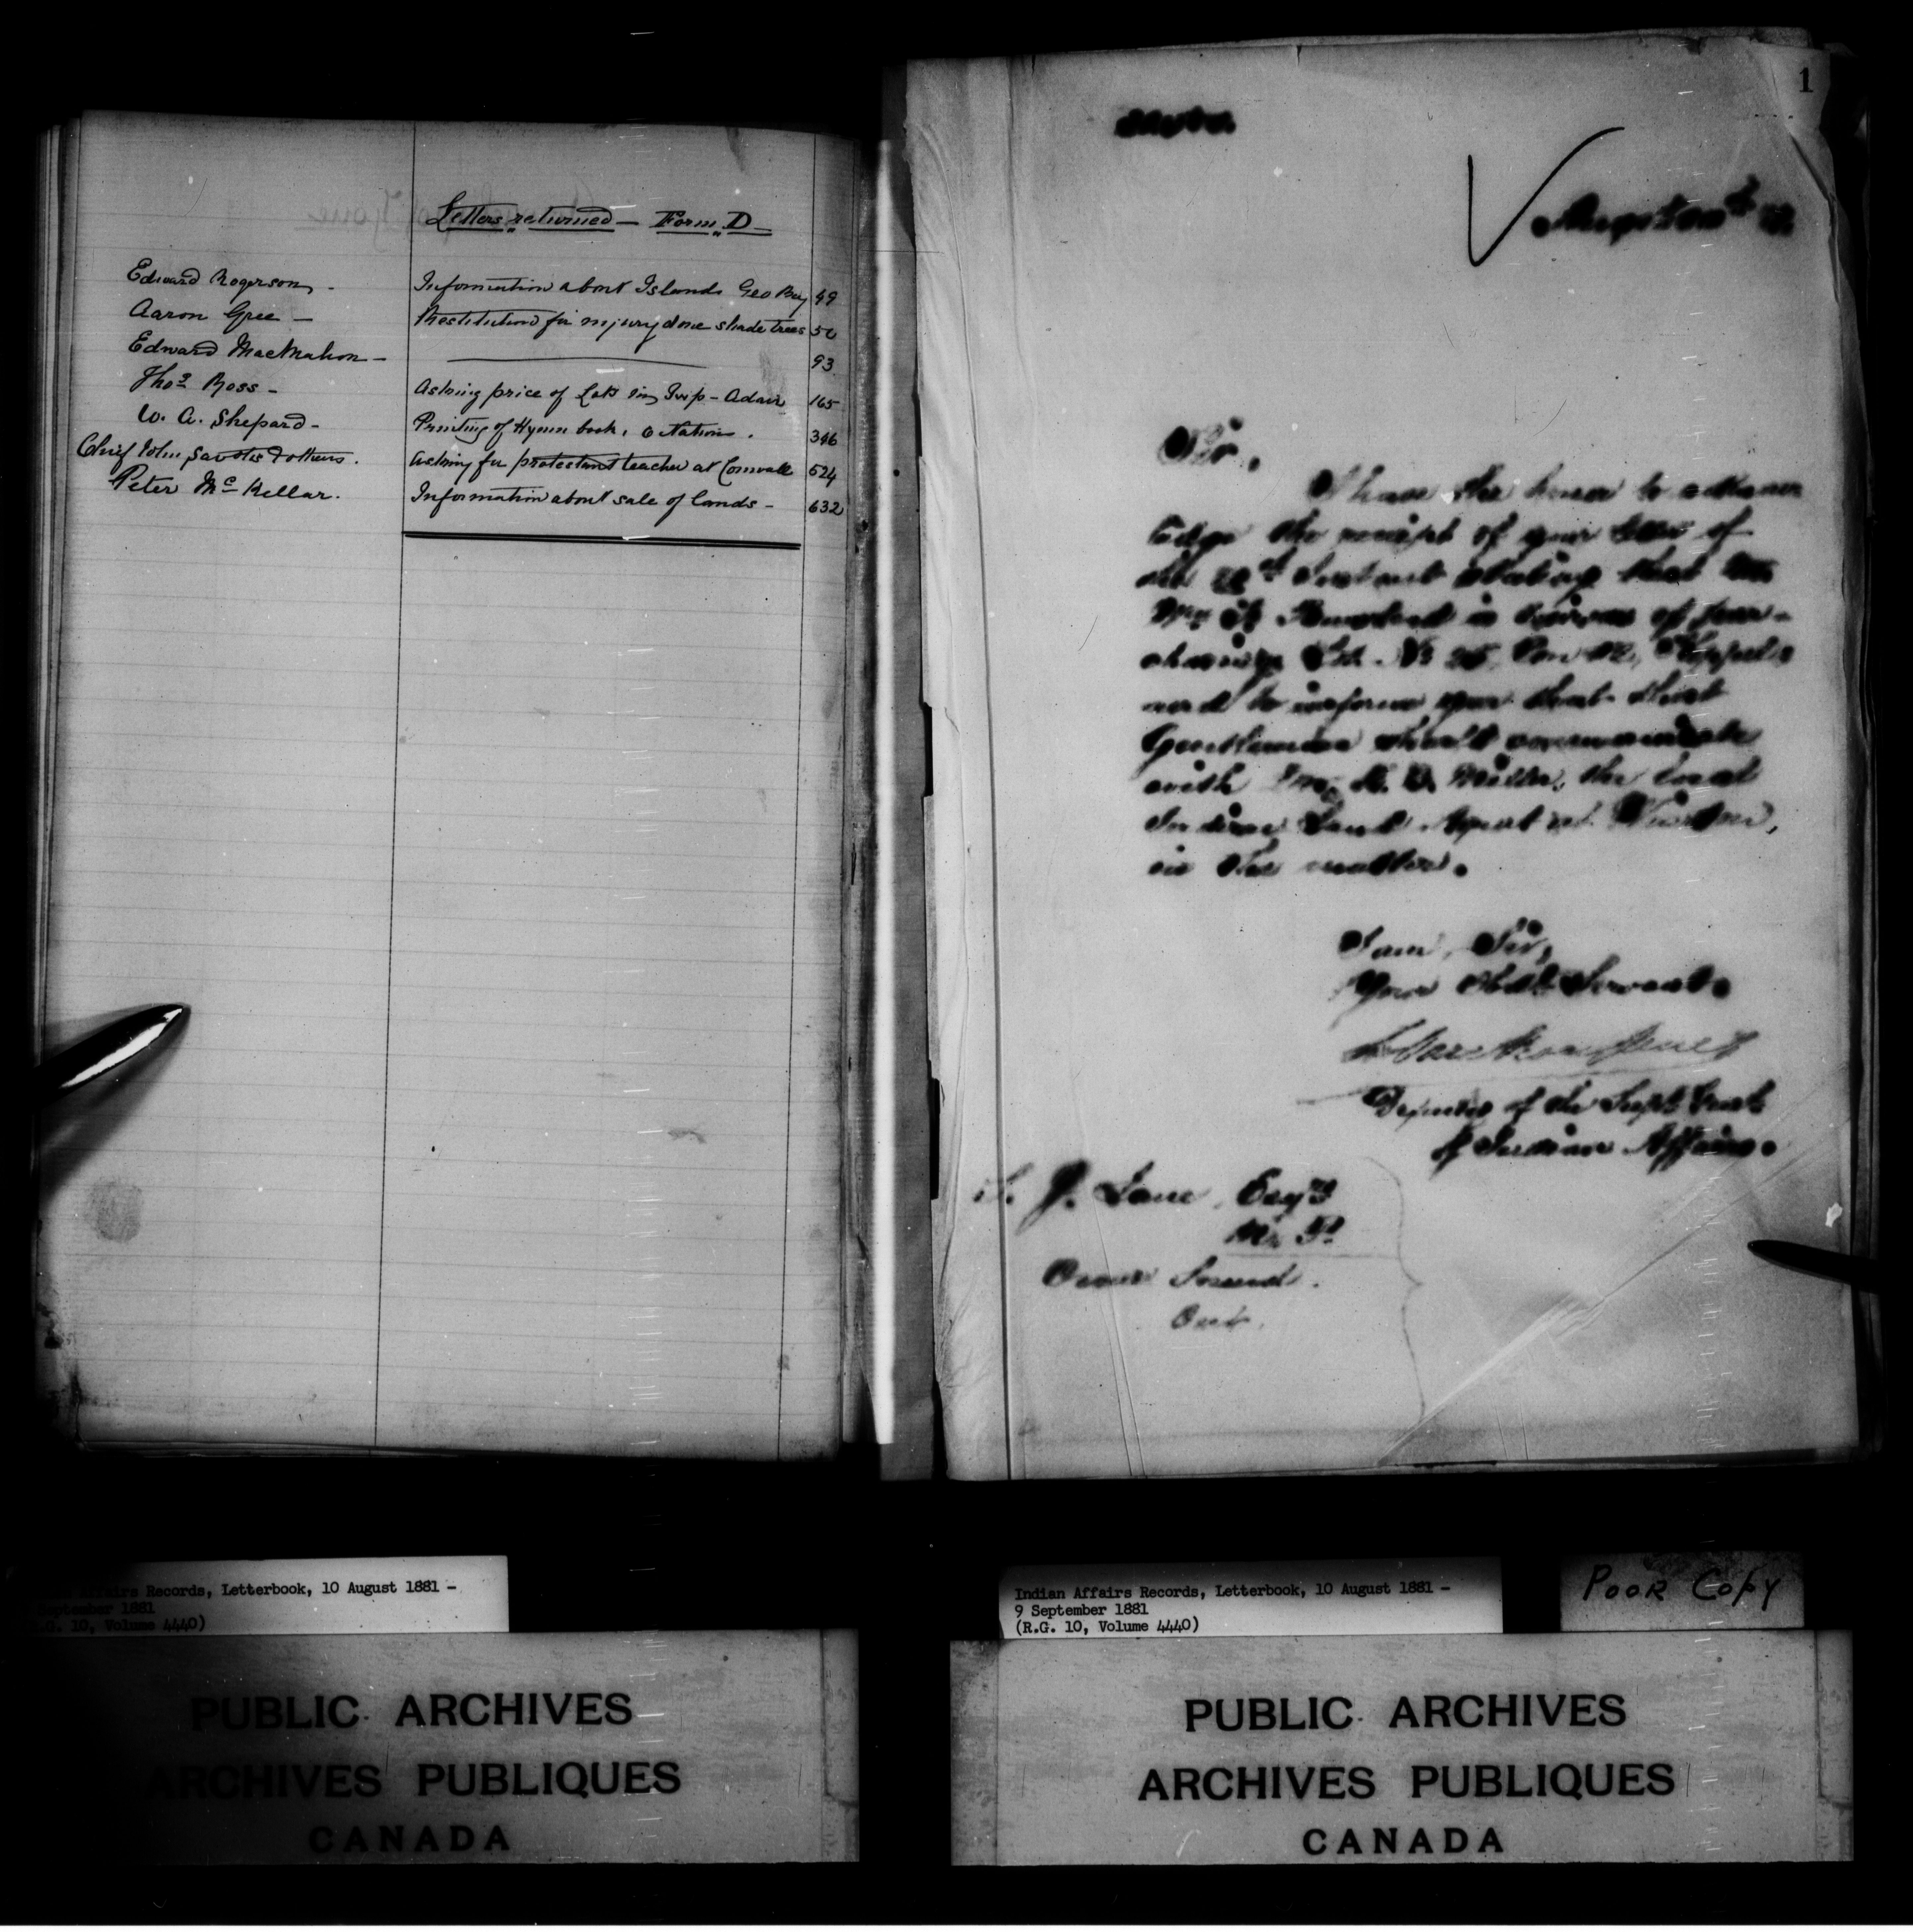 Letters returned — Form D —
Edward Rogerson — Information about Islands Geo Bay 49
Aaron Gree — Restitution for injury done shade trees 50
Edward MacMahon — 93
Thos Ross — Asking price of Lots in Twp — Adair 165
W. A. Shepard — Printing of Hymn book, 6 Nations. 346
Chief John & others. Asking for protestant teacher at Cornwall 524
Peter McKellar. Information about sale of lands — 632
1
Sir,
I have the honor to acknow
ledge the receipt of your letter of
the Instant stating that
Mr is desirous of pur-
chasing Lot No 25, Con
and to inform you that that
Gentleman should communicate
with Mr. B. Miller, the Local
Indian Land Agent at Wiarton,
in the matter.
I am, Sir,
Your Obdt Servant
Deputy of the Supt Genl
of Indian Affairs.
J. Lane Esqre
M. P.
Owen Sound.
Ont.
Affairs Records, Letterbook, 10 August 1881 -
September 1881
R.G. 10, Volume 4440)
PUBLIC ARCHIVES
ARCHIVES PUBLIQUES
CANADA
Indian Affairs Records, Letterbook, 10 August 1881 -
9 September 1881
(R.G. 10, Volume 4440)
POOR COPY
PUBLIC ARCHIVES
ARCHIVES PUBLIQUES
CANADA